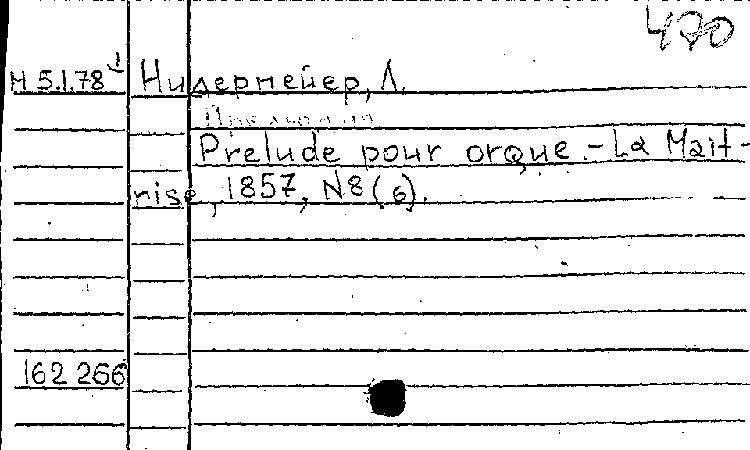 470
М 5.1.78 1 Нидермейер, Л.
Prelude pour orgue. - La Mait-
rise, 1857, N8 (6).
162 266